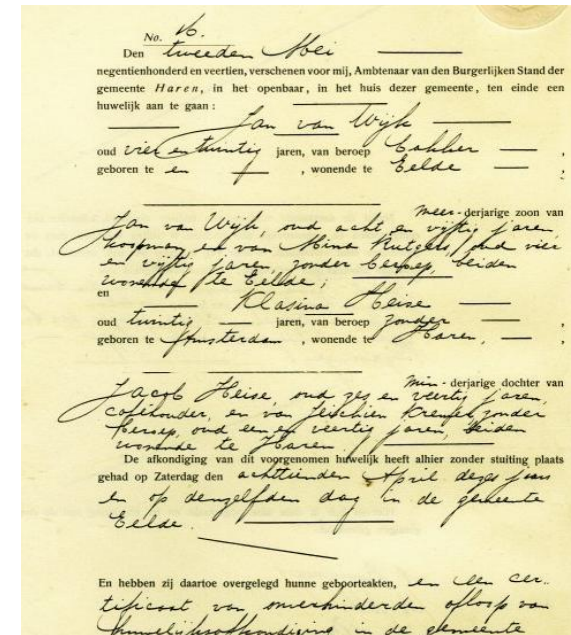 No. 16.
Den tweeden Mei
negentienhonderd en veertien, verschenen voor mij, Ambtenaar van den Burgerlijken Stand der
gemeente Haren, in het openbaar, in het huis dezer gemeente, ten einde een
huwelijk aan te gaan:
Jan van Wijk
oud vier en twintig jaren, van beroep bakker,
geboren te en, wonende te Eelde;
meer-derjarige zoon van
Jan van Wijk, oud acht en vijftig jaren,
koopman en van Mina Rutgers, oud vier
en vijftig jaren, zonder beroep, beiden
wonende te Eelde;
en
Klasina Heise
oud twintig jaren, van beroep zonder,
geboren te Amsterdam, wonende te Haren,
min-derjarige dochter van
Jacob Heise, oud zes en veertig jaren,
caféhouder, en van Jeschien zonder
beroep, oud een en veertig jaren, beiden
wonende te Haren
De afkondiging van dit voorgenomen huwelijk heeft alhier zonder stuiting plaats
gehad op Zaterdag den achttienden April dezes jaars
en op denzelfden dag in de gemeente
Eelde.
En hebben zij daartoe overgelegd hunne geboorteakten, en een cer-
tificaat van onverhinderden afloop van
huwelijksafkondiging in de gemeente